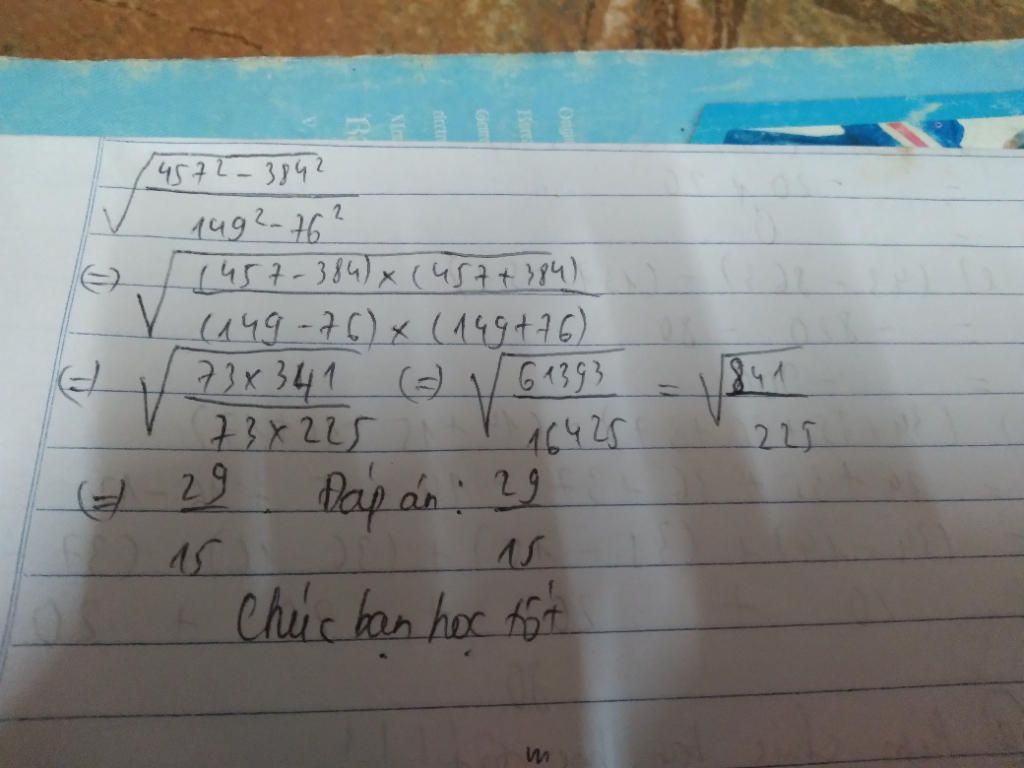 √((457² - 384²)/(149² - 76²))
(=) √(((457 - 384) × (457 + 384))/((149 - 76) × (149 + 76)))
(=) √((73 × 341)/(73 × 225)) (=) √(61393/16425) = √(841/225)
(=) 29/15 . Đáp án : 29/15
Chúc bạn học tốt
m